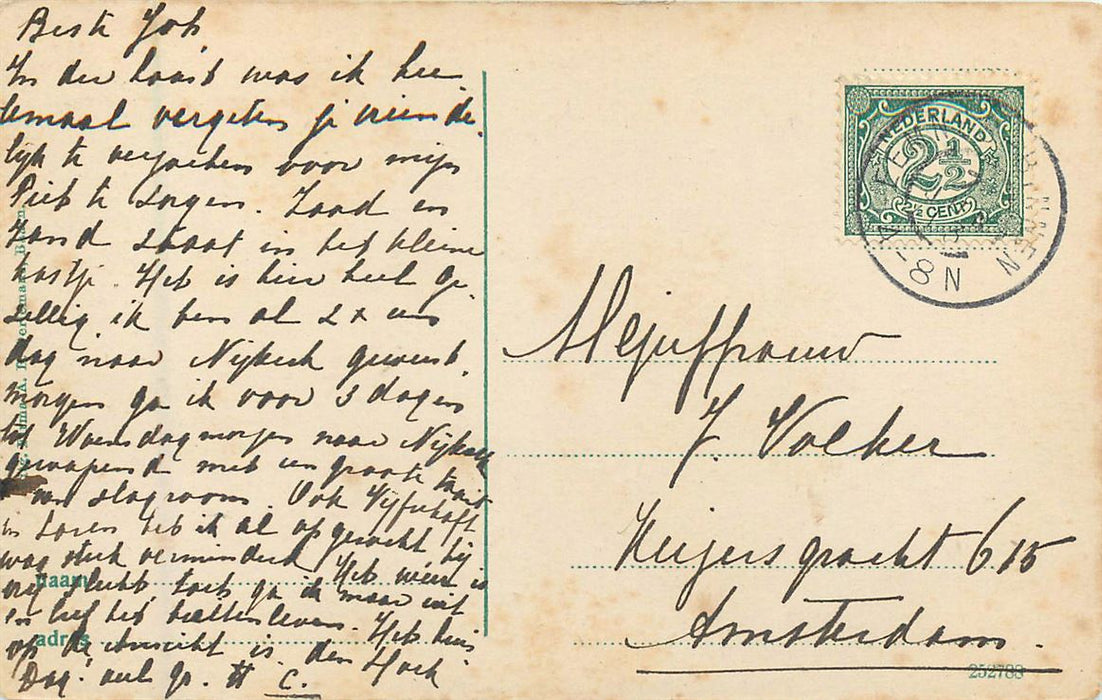 Beste Joh,
In der haast was ik hee
lemaal vergeten je vriende
lijk te verzoeken voor mijn
Piet te zorgen. Zaad en
Zand staat in het kleine
kastje. Het is hier heel ge
zellig, ik ben al 2x een
dag naar Nijkerk geweest,
morgen ga ik voor 3 dagen
tot Woensdagmorgen naar Nijkerk
gewapend met een groote taart
van slagroom. Ook
in Laren heb ik al opgezocht, hij
was sterk verminderd. Het weer is
erg slecht, toch ga ik maar uit
en het buitenleven. Het huis
op de is den Hoek
Dag. veel gr. H C.
NEDERLAND
2½
2½ CENT
8 N
Mejuffrouw
J. Volker
Keizersgracht 615
Amsterdam.
naam
adres
252788